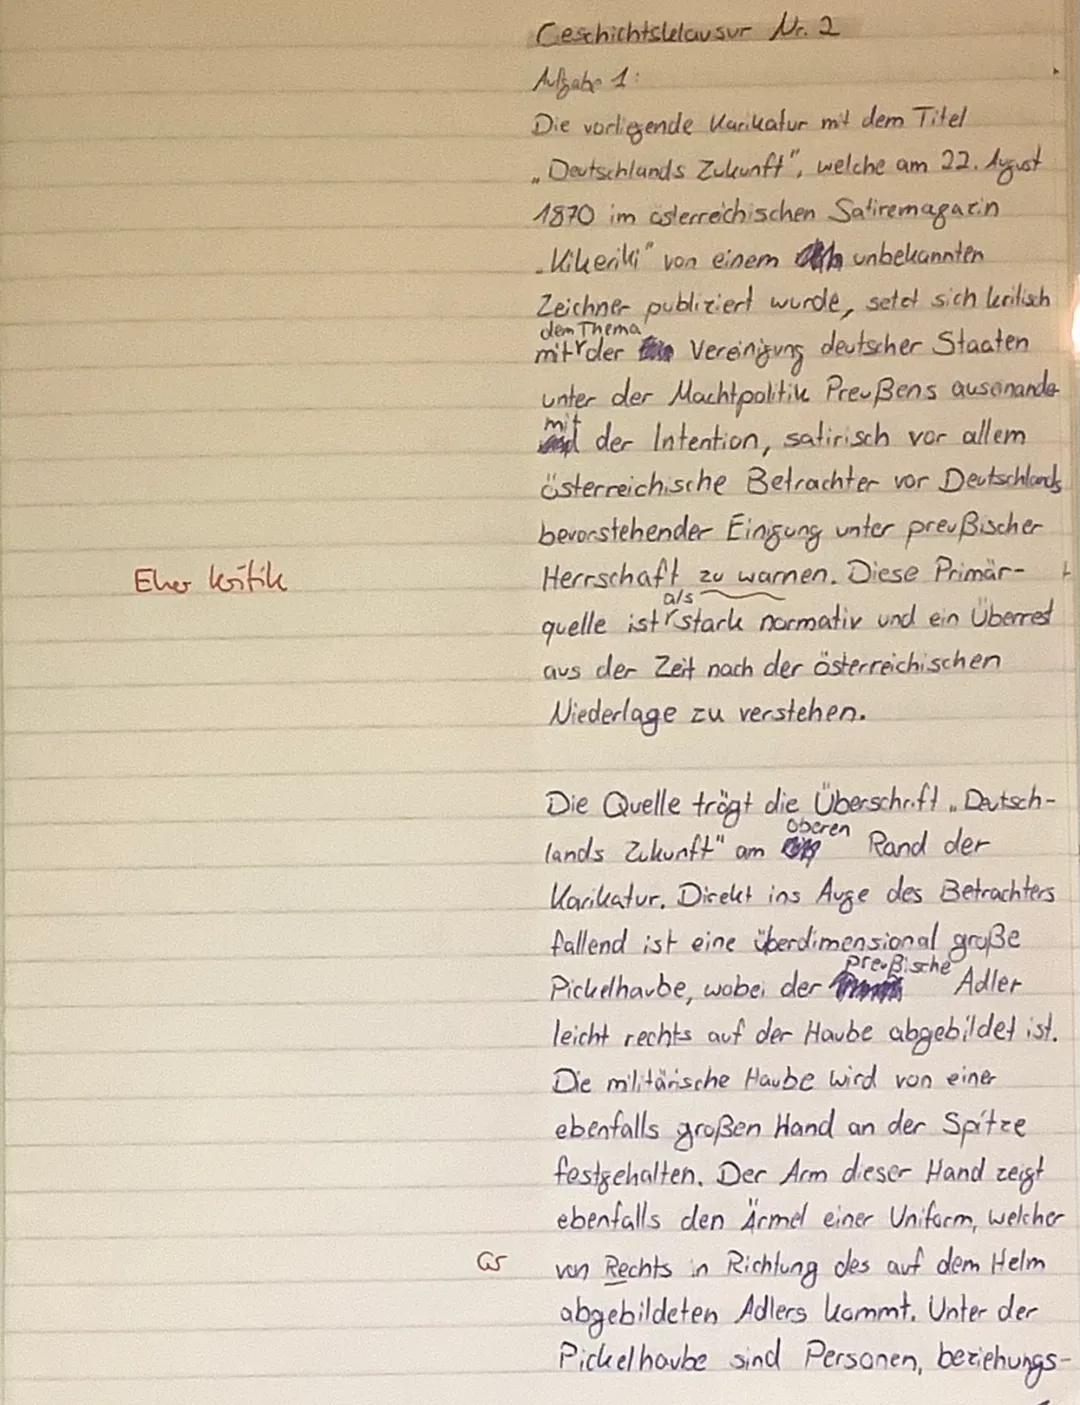 Geschichtsklausur Nr. 2
Aufgabe 1:
Die vorliegende Karikatur mit dem Titel
„Deutschlands Zukunft", welche am 22. August
1870 im österreichischen Satiremagazin
„Kikeriki" von einem unbekannten
Zeichner publiziert wurde, setzt sich kritisch
mit dem Thema der Vereinigung deutscher Staaten
unter der Machtpolitik Preußens ausenander
mit der Intention, satirisch vor allem
österreichische Betrachter vor Deutschlands
bevorstehender Einigung unter preußischer
Eher Kritik
Herrschaft zu warnen. Diese Primär-
quelle ist als stark normativ und ein Überrest
aus der Zeit nach der österreichischen
Niederlage zu verstehen.
Die Quelle trägt die Überschrift „Deutsch-
lands Zukunft" am oberen Rand der
Karikatur. Direkt ins Auge des Betrachters
fallend ist eine überdimensional große
Pickelhaube, wobei der preußische Adler
leicht rechts auf der Haube abgebildet ist.
Die militärische Haube wird von einer
ebenfalls großen Hand an der Spitze
festgehalten. Der Arm dieser Hand zeigt
ebenfalls den Ärmel einer Uniform, welcher
von Rechts in Richtung des auf dem Helm
abgebildeten Adlers kommt. Unter der
Pickelhaube sind Personen, beziehungs-